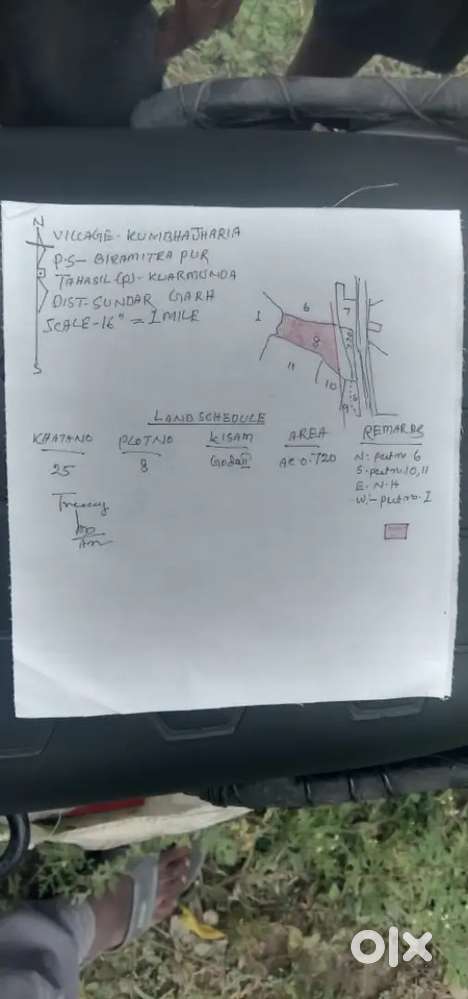 N
VILLAGE- KUMBHAJHARIA
P.S- BIRAMITRA PUR
TAHASIL (P)- KUARMUNDA
DIST- SUNDAR GARH
SCALE-16" = 1 MILE
S
6
7
I
8
11
10
9
LAND SCHEDULE
KHATA NO PLOT NO KISAM AREA REMARKS
25 8 AC 0.720
N: plot no 6
S. plot no. 10, 11
E. N.H
W:- plot no. I
olx